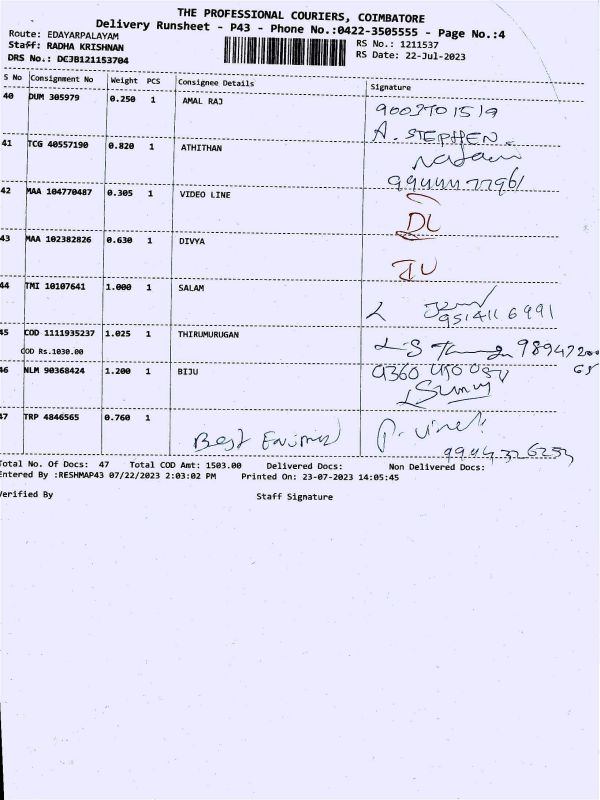 THE PROFESSIONAL COURIERS, COIMBATORE
Delivery Runsheet - P43 - Phone No.:0422-3505555 - Page No.:4
Route: EDAYARPALAYAM
Staff: RADHA KRISHNAN
DRS No.: DCJB121153704
RS No.: 1211537
RS Date: 22-Jul-2023
S No Consignment No Weight PCS Consignee Details Signature
40 DUM 305979 0.250 1 AMAL RAJ
A. STEPHEN
41 TCG 40557190 0.820 1 ATHITHAN
42 MAA 104770487 0.305 1 VIDEO LINE
DL
43 MAA 102382826 0.630 1 DIVYA
44 TMI 10107641 1.000 1 SALAM
9514116991
45 COD 1111935237 1.025 1 THIRUMURUGAN
COD Rs.1030.00
46 NLM 90368424 1.200 1 BIJU
47 TRP 4846565 0.760 1
Best
9944326253
Total No. Of Docs: 47 Total COD Amt: 1503.00 Delivered Docs: Non Delivered Docs:
Entered By :RESHMAP43 07/22/2023 2:03:02 PM Printed On: 23-07-2023 14:05:45
Verified By Staff Signature